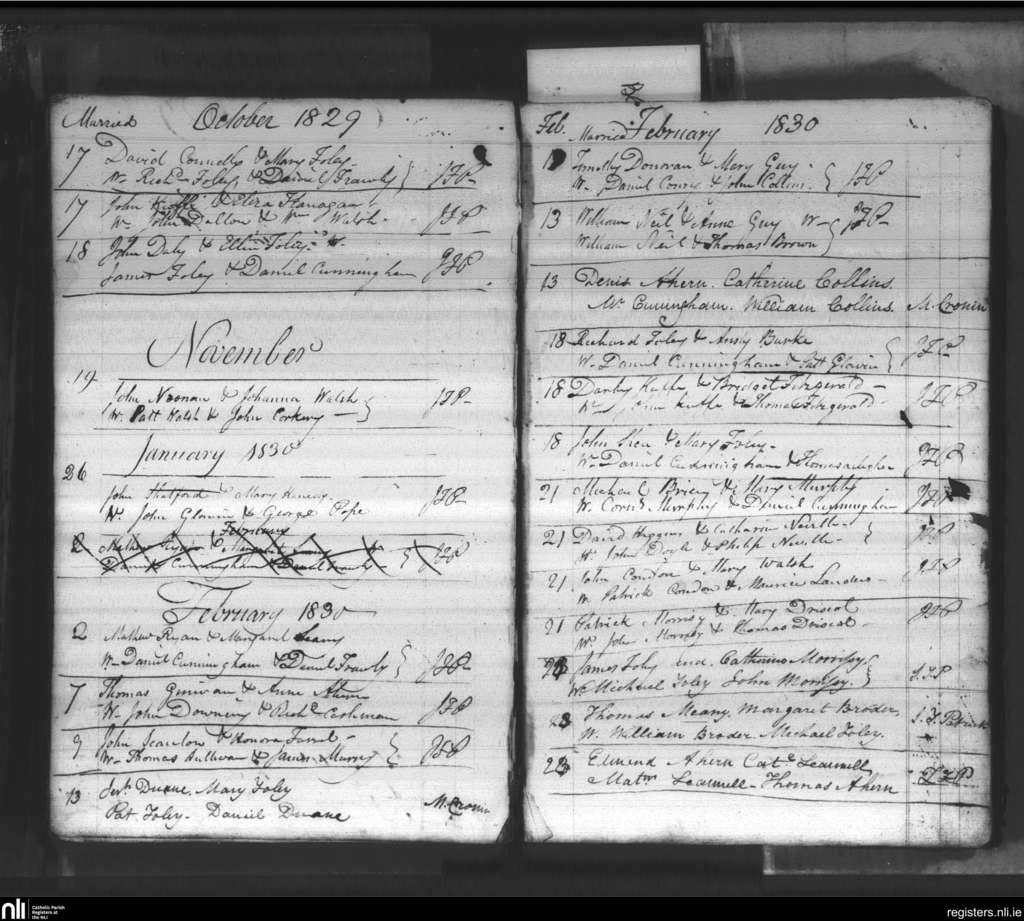 Married October 1829
17 David Connelly & Mary Foley
Ws Richd Foley & Daniel Frawly JFP
17 John & Eliza Flanagan
Ws John Dallon & Wm Walsh JFP
18 John Daly & Ellin Foley Ws
James Foley & Daniel Cunningham JFP
November
19
John Noonan & Johanna Walsh
Ws Patt Walsh & John Corkery JFP
January 1830
26
John & Mary
Ws John Glavin & George Pope JFP
February
2 Mathew Ryan & Margaret Ws
Daniel Cunningham & Daniel Frawly JFP
February 1830
2 Mathew Ryan & Margaret
Ws Daniel Cunningham & Daniel Frawly JFP
7 Thomas & Anne Ahern
Ws John Downing & Richd Cashman JFP
9 John Scanlon & Honora
Ws Thomas Sullivan & James Murry JFP
13 Duane Mary Foley
Pat Foley - Daniel Duane M. Cronin
Feb. Married February 1830
Timothy Donovan & Mary Guy
Ws Daniel Conry & John Collins JFP
13 William Neil & Anne Guy Ws
William Neil & Thomas Brown JFP
13 Denis Ahern. Catherine Collins.
Mr Cunningham. William Collins. M. Cronin
18 Richard Foley & Burke
Ws Daniel Cunningham & Patt Glavin JFP
18 Keeffe & Bridget Fitzgerald
Ws Keeffe & Thomas Fitzgerald JFP
18 John Shea & Mary Foley
Ws Daniel Cunningham & JFP
21 Michael Brien & Mary Murphy
Ws Corns Murphy & Daniel Cunningham JFP
21 David Higgins & Catharine Neville
Ws John Doyle & Philip Neville JFP
21 John Condon & Mary Walsh
Ws Patrick Condon & Maurice Landers JFP
21 Patrick Morrisy & Mary Driscol
Ws John Morrisy & Thomas Driscol JFP
James Foley and Catherine Morrisy
Ws Michael Foley John Morrisy. J.F.P
23 Thomas Meany. Margaret Broder
W. William Broder. Michael Foley.
Edmond Ahern Cate
Thomas Ahern J.F.P
nli
Catholic Parish
Registers at
the NLI
registers.nli.ie